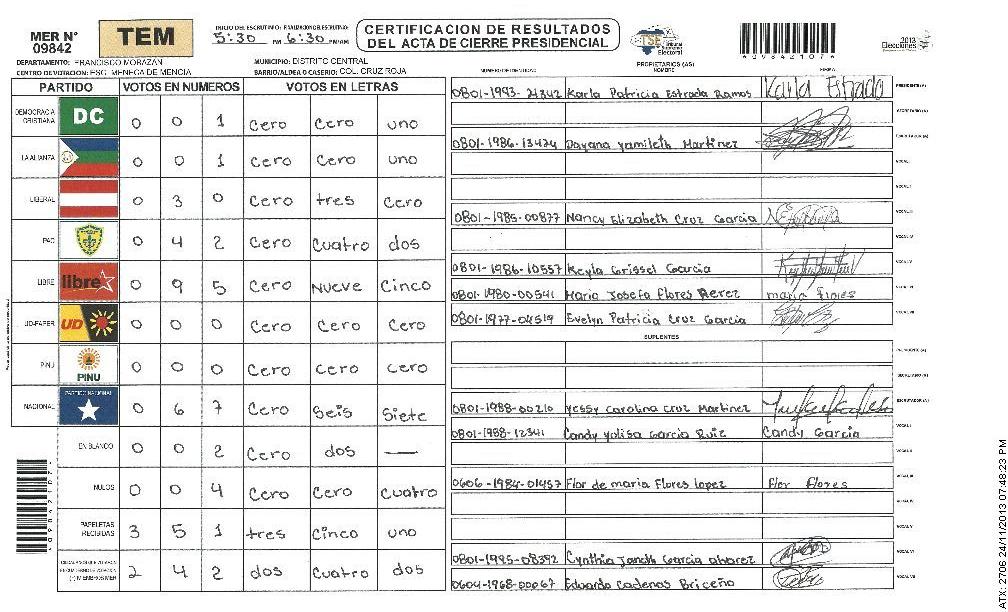 MER N° 09842
TEM
INICIO DEL ESCRUTINIO: FINALIZACION DEL ESCRUTINIO:
5:30 PM 6:30 PM/AM
CERTIFICACION DE RESULTADOS
DEL ACTA DE CIERRE PRESIDENCIAL
TSE Tribunal Supremo Electoral
*09842107*
2013
Elecciones
DEPARTAMENTO: FRANCISCO MORAZAN
MUNICIPIO: DISTRITO CENTRAL
CENTRO DE VOTACION: ESC. MENEGA DE MENCIA
BARRIO/ALDEA O CASERIO: COL. CRUZ ROJA
PARTIDO VOTOS EN NUMEROS VOTOS EN LETRAS
DEMOCRACIA CRISTIANA DC 0 0 1 Cero Cero uno
LA ALIANZA 0 0 1 Cero Cero uno
LIBERAL 0 3 0 Cero tres Cero
PAC 0 4 2 Cero Cuatro dos
LIBRE libre 0 9 5 Cero Nueve Cinco
UD-FAPER UD 0 0 0 Cero Cero Cero
PINU PINU 0 0 0 Cero cero cero
NACIONAL PARTIDO NACIONAL 0 6 7 Cero Seis Siete
EN BLANCO 0 0 2 Cero dos —
NULOS 0 0 4 Cero Cero Cuatro
PAPELETAS RECIBIDAS 3 5 1 tres Cinco uno
2 4 2 dos Cuatro dos
PROPIETARIOS (AS)
NUMERO DE IDENTIDAD NOMBRE FIRMA
0801-1993-21342 Karla Patricia Estrada Ramos Karla Estrado PRESIDENTE (A)
SECRETARIO (A)
0801-1986-13474 Dayana Yamileth Martinez ESCRUTADOR (A)
VOCAL I
VOCAL II
0801-1985-00877 Nancy Elizabeth Cruz Garcia VOCAL III
VOCAL IV
0801-1986-10557 Keyla Grissel Garcia VOCAL V
0801-1980-00541 Maria Josefa Flores Perez maria Flores VOCAL VI
0801-1977-04519 Evelyn Patricia Cruz Garcia VOCAL VII
SUPLENTES
PRESIDENTE (A)
SECRETARIO (A)
0801-1988-00210 Yessy Carolina Cruz Martinez ESCRUTADOR (A)
0801-1988-12341 Candy yolisa Garcia Ruiz Candy Garcia VOCAL I
VOCAL II
0606-1984-01457 Flor de maria Flores lopez Flor Flores VOCAL III
VOCAL IV
VOCAL V
0801-1995-08392 Cynthia Janeth Garcia alvarez VOCAL VI
0604-1968-00067 Eduardo Cadenas Briceño VOCAL VII
*09842107*
ATX 2706 24/11/2013 07:48:23 PM